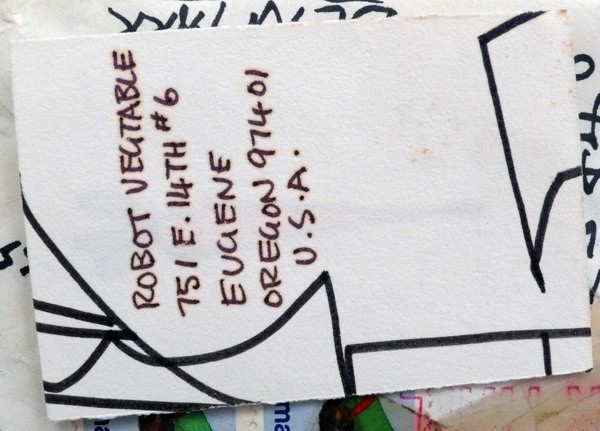 ROBOT VEGTABLE
751 E. 14TH #6
EUGENE
OREGON 97401
U.S.A.
ma